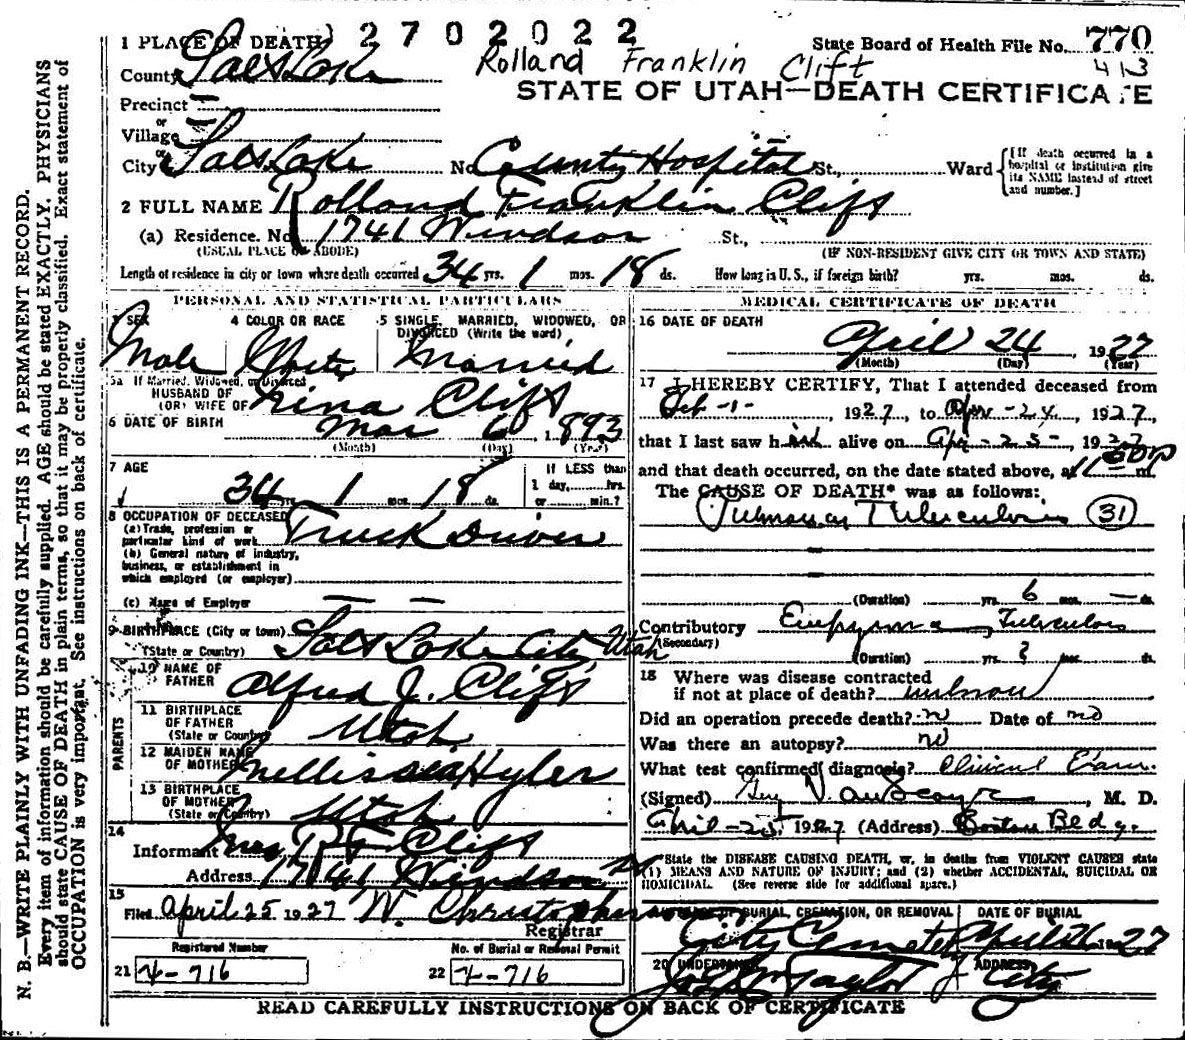 1 PLACE OF DEATH 2 7 0 2 0 2 2 State Board of Health File No. 770
Rolland Franklin Clift 413
County Salt Lake
STATE OF UTAH—DEATH CERTIFICATE
Precinct —
or
Village —
or
City Salt Lake No. County Hospital St., Ward
[If death occurred in a hospital or institution give its NAME instead of street and number.]
2 FULL NAME Rolland Franklin Clift
(a) Residence. No. 1741 Windsor St.,
(USUAL PLACE OF ABODE) (IF NON-RESIDENT GIVE CITY OR TOWN AND STATE)
Length of residence in city or town where death occurred 34 yrs. 1 mos. 18 ds. How long in U.S., if foreign birth? yrs. mos. ds.
PERSONAL AND STATISTICAL PARTICULARS
3 SEX 4 COLOR OR RACE 5 SINGLE, MARRIED, WIDOWED, OR DIVORCED (Write the word)
Male White Married
5a If Married, Widowed, or Divorced
HUSBAND OF
(OR) WIFE OF Nina Clift
6 DATE OF BIRTH Mar 6 1893
(Month) (Day) (Year)
7 AGE If LESS than
34 yrs. 1 mos. 18 ds. 1 day, hrs.
or min.?
8 OCCUPATION OF DECEASED
(a) Trade, profession or
particular kind of work Truck Driver
(b) General nature of industry,
business, or establishment in
which employed (or employer)
(c) Name of Employer — —
9 BIRTHPLACE (City or town) Salt Lake City, Utah
(State or Country)
PARENTS
10 NAME OF
FATHER Alfred J. Clift
11 BIRTHPLACE
OF FATHER
(State or Country) Utah
12 MAIDEN NAME
OF MOTHER Mellissa Hyler
13 BIRTHPLACE
OF MOTHER
(State or Country) Utah
14
Informant Mrs R F Clift
Address 1741 Windsor
15
Filed April 25 1927 W. Christopherson
Registrar
Registered Number No. of Burial or Removal Permit
21 4-716 22 4-716
MEDICAL CERTIFICATE OF DEATH
16 DATE OF DEATH
April 24, 1927
(Month) (Day) (Year)
17 I HEREBY CERTIFY, That I attended deceased from
Feb-1-, 1927, to Apr-24, 1927,
that I last saw him alive on Apr-23-, 1927
and that death occurred, on the date stated above, at m
The CAUSE OF DEATH* was as follows:
Pulmonary Tuberculosis (31)
(Duration) yrs. 6 mos. — ds.
Contributory Empyema, Tuberculous
(Secondary)
(Duration) yrs. ? mos. ds.
18 Where was disease contracted
if not at place of death? unknown
Did an operation precede death? no Date of no
Was there an autopsy? no
What test confirmed diagnosis? Clinical Exam.
(Signed) , M. D.
April-25 1927 (Address) Boston Bldg.
*State the DISEASE CAUSING DEATH, or, in deaths from VIOLENT CAUSES state
(1) MEANS AND NATURE OF INJURY; and (2) whether ACCIDENTAL, SUICIDAL OR
HOMICIDAL. (See reverse side for additional space.)
19 PLACE OF BURIAL, CREMATION, OR REMOVAL DATE OF BURIAL
City Cemetery April 26 1927
20 UNDERTAKER ADDRESS
Taylor City
READ CAREFULLY INSTRUCTIONS ON BACK OF CERTIFICATE
N. B.—WRITE PLAINLY WITH UNFADING INK—THIS IS A PERMANENT RECORD.
Every item of information should be carefully supplied. AGE should be stated EXACTLY. PHYSICIANS
should state CAUSE OF DEATH in plain terms, so that it may be properly classified. Exact statement of
OCCUPATION is very important. See instructions on back of certificate.